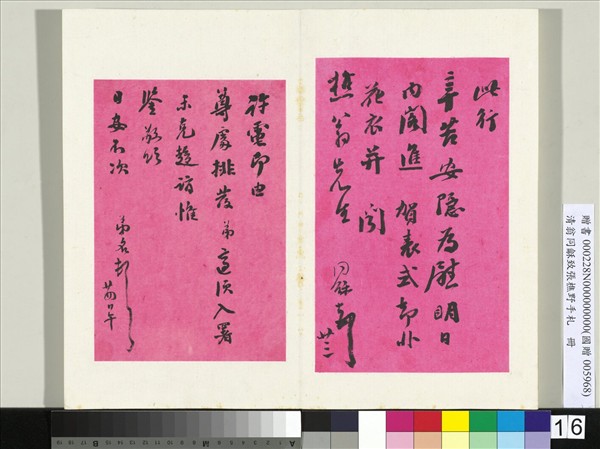 此行
辛苦安隱為慰明日
內閣進賀表式却非
花衣并聞
樵翁先生
同龢頓
廿三
許電即由
尊處排發弟這須入署
示免趨謁惟
鑒敬頌
日安不次
弟名頓
廿四日午
贈書 000228N000000000(國贈 005968)
清翁同龢致張樵野手札 冊
16